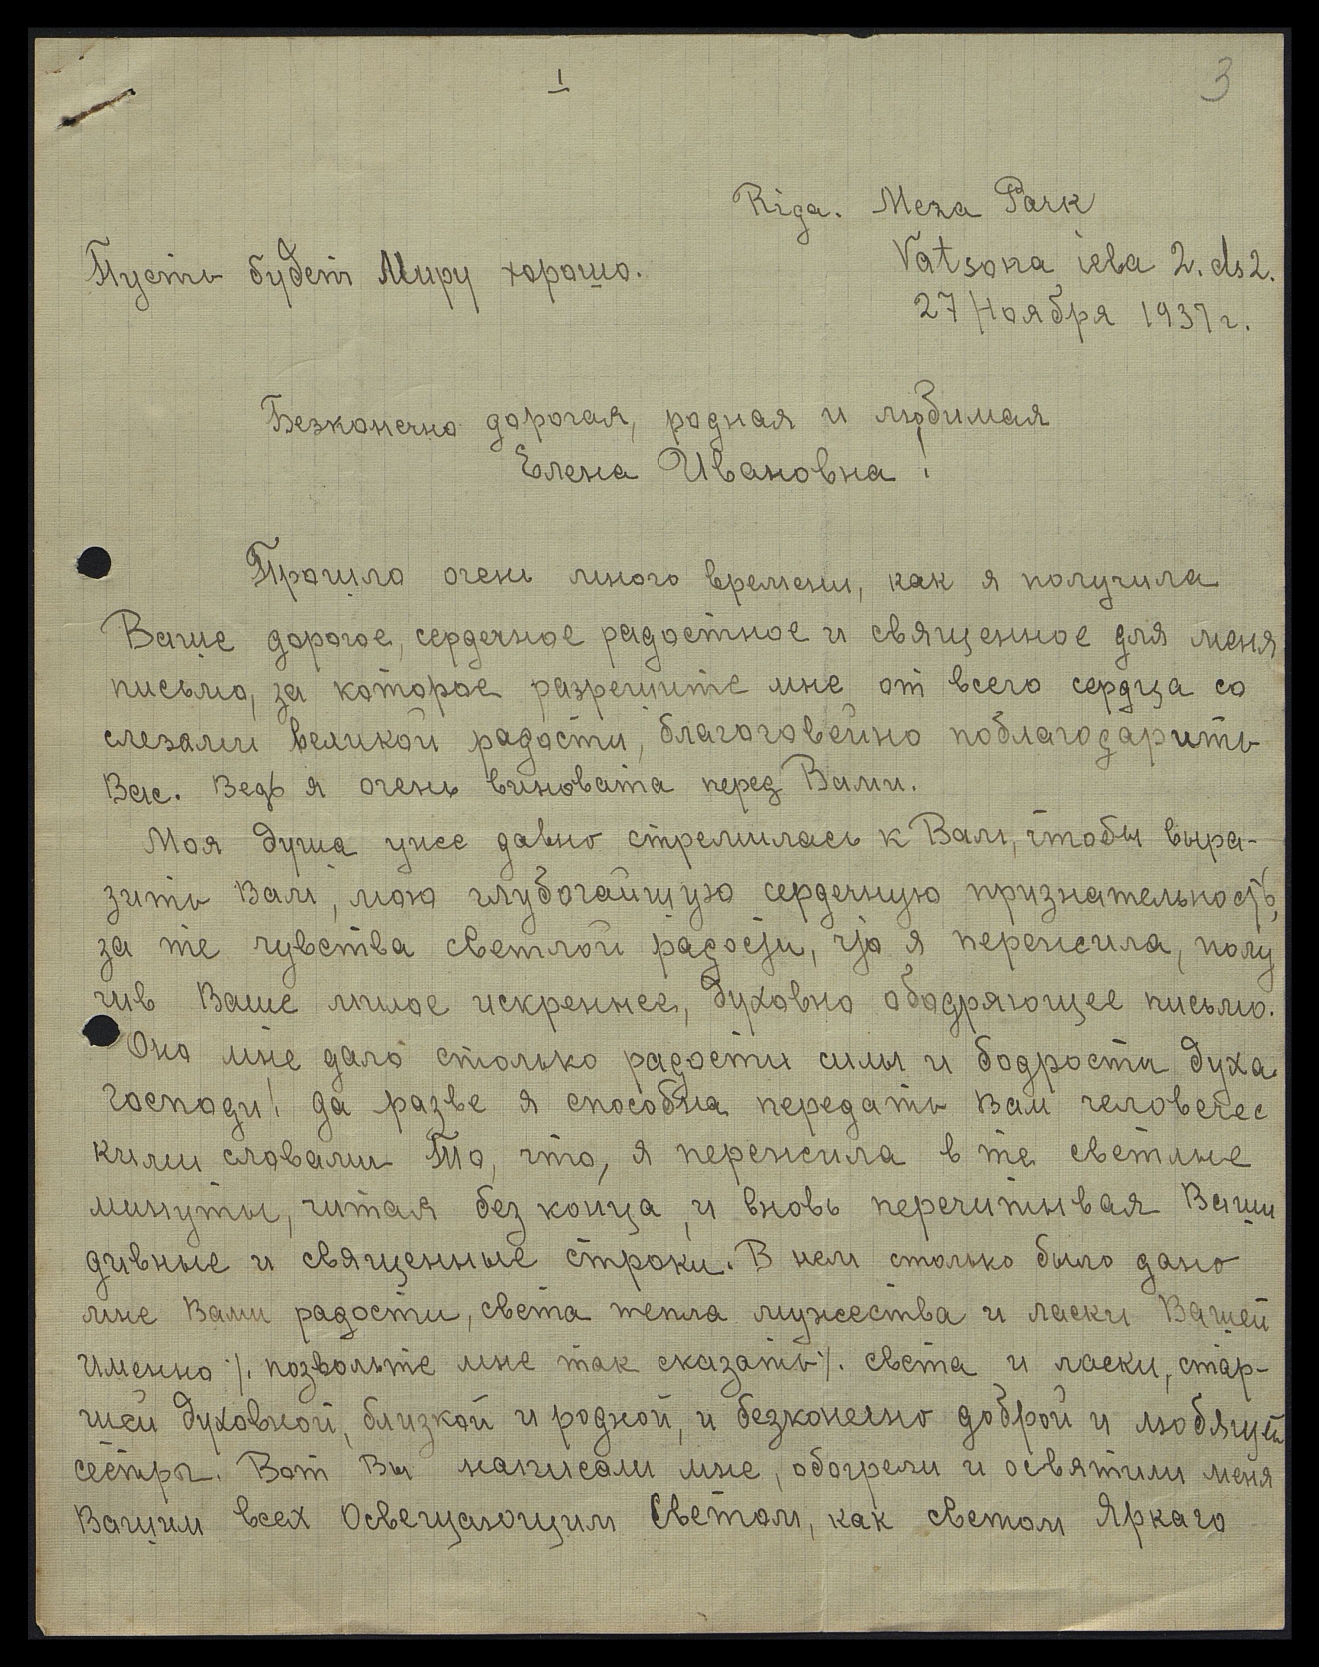 1
3
Riga. Меза Park
Пусть будет Миру хорошо.
Vatsona iela 2. ds 2.
27 Ноября 1937 г.
Безконечно дорогая, родная и любимая
Елена Ивановна!
Прошло очень много времени, как я получила
Ваше дорогое, сердечное радостное и священное для меня
письмо, за которое разрешите мне от всего сердца со
слезами великой радости, благоговейно поблагодарить
Вас. Ведь я очень виновата перед Вами.
Моя душа уже давно стремилась к Вам, чтобы выра-
зить Вам, мою глубочайшую сердечную признательность,
за те чувства светлой радости, что я пережила, полу
чив Ваше милое искреннее, духовно ободряющее письмо.
Оно мне дало столько радости силы и бодрости духа.
Господи! да разве я способна передать Вам человечес
кими словами То, что, я пережила в те светлые
минуты, читая без конца, и вновь перечитывая Ваши
дивные и священные строки. В нем столько было дано
мне Вами радости, света тепла мужества и ласки Вашей
именно ·/. позвольте мне так сказать ·/. света и ласки, стар-
шей духовной, близкой и родной, и безконечно доброй и любящей
сестры. Вот Вы написали мне, обогрели и освятили меня
Вашим всех Освещающим Светом, как светом Яркаго